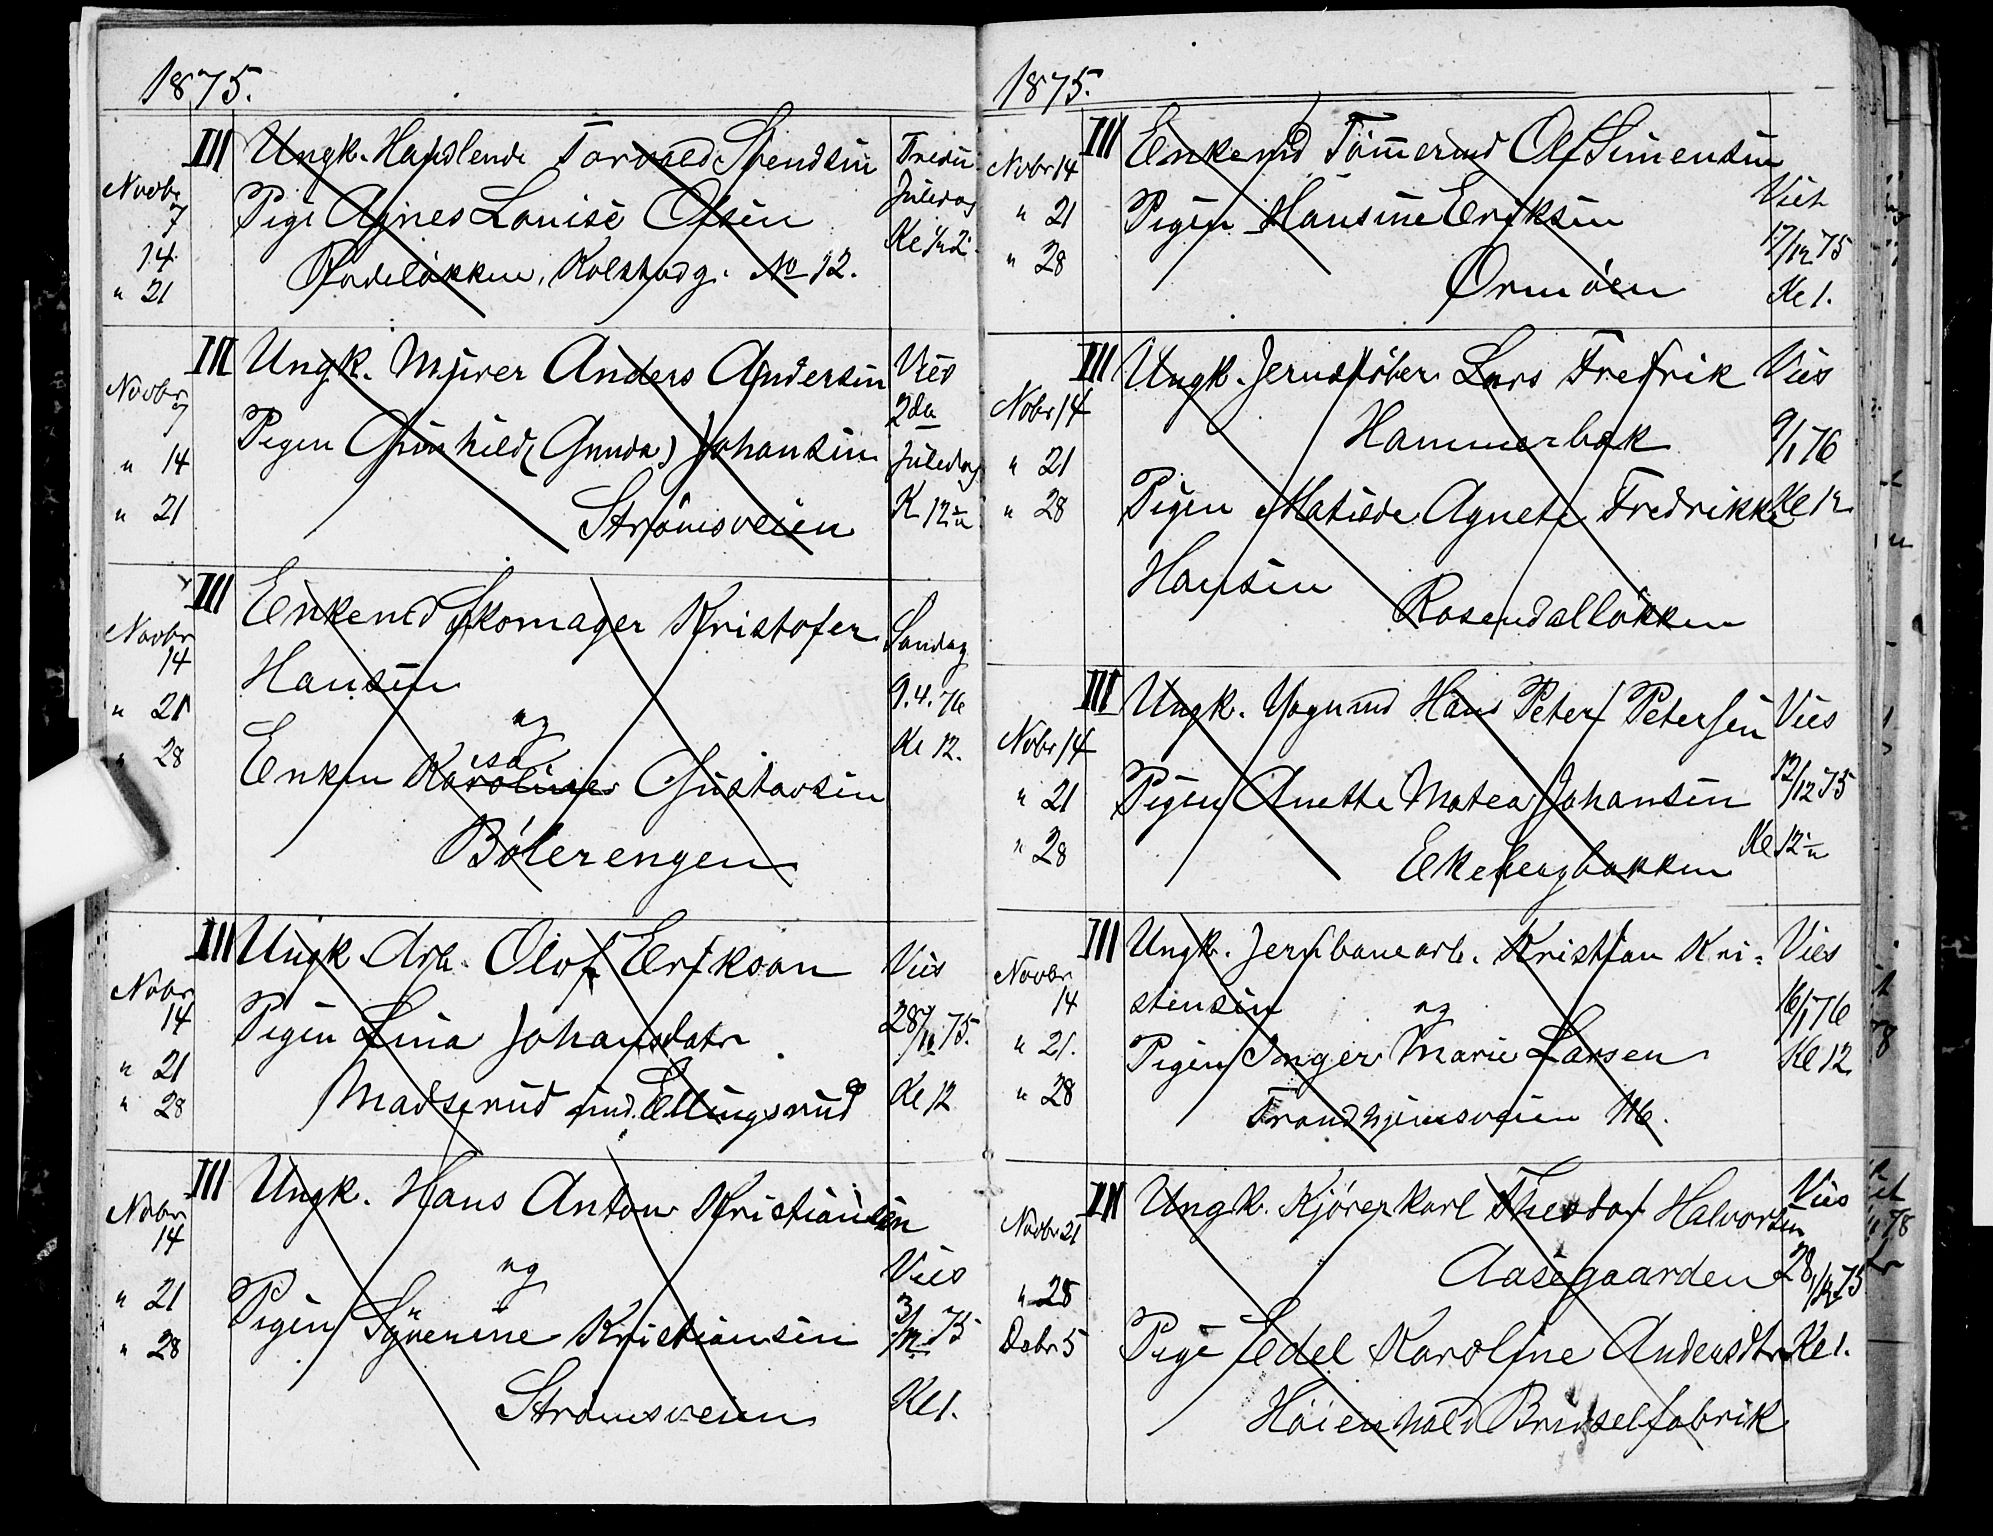 1875.
III Ungk. Handlende Torvald Svendsen Tredie
Novbr 7 Pige Agnes Louise Olsen Juledag
14. Rodeløkken, Kolstadg. No 12. Kl 1½
" 21
III Ungk. Murer Anders Andersen Vies
Novbr 7 2den
" 14 Pigen Gunhild (Gunda) Johansen Juledag
" 21 Strømsveien K 12½
III Enkemd Skomager Kristofer Søndag
Novbr 14 Hansen 9.4.76
" 21 og Kl 12.
isa
" 28 Enken Karoline Gustavsen
Bølerengen
III Ungk. Arb. Olof Erikson Vies
Nobr 14 Pigen Lina Johansdatr 28/12 75.
" 21 Madserud und. Ellingsrud Kl 12
" 28
III Ungk. Hans Anton Kristiansen
Nobr 14 og Vies
" 21 Pigen Syverine Kristiansen 3/12 75
" 28 Strømsveien Kl 1.
1875.
III Enkemd Tømmermd Ole Simensen
Nobr 14 Viet
" 21 Pigen Hansine Eriksen 17/12 75
" 28 Ormøen Kl 1.
III Ungk. Jernstøber Lars Fredrik Vies
Nobr 14 Hammerbak 9/1 76
" 21
" 28 Pigen Matilde Agnete Fredrikke Kl 12
Hansen Rosendalløkken
III Ungk. Vognmd Hans Peter Petersen Vies
Nobr 14 12/12 75
" 21 Pigen Anette Matea Johansen
" 28 Ekebergbakken Kl 12½
III Ungk. Jernbanearb. Kristian Kri- Vies
Novbr 14 stensen og 16/1 76
" 21. Pigen Inger Marie Larsen Kl 12
" 28 Trondhjemsveien
III Ungk. Kjørerkarl Theodor Halvorsen Vies
Novbr 21 Aasegaarden 28/12 75
" 28
Debr 5 Pige Edel Karoline Andersdtr Kl 1.
Høienhald Brudselfabrik